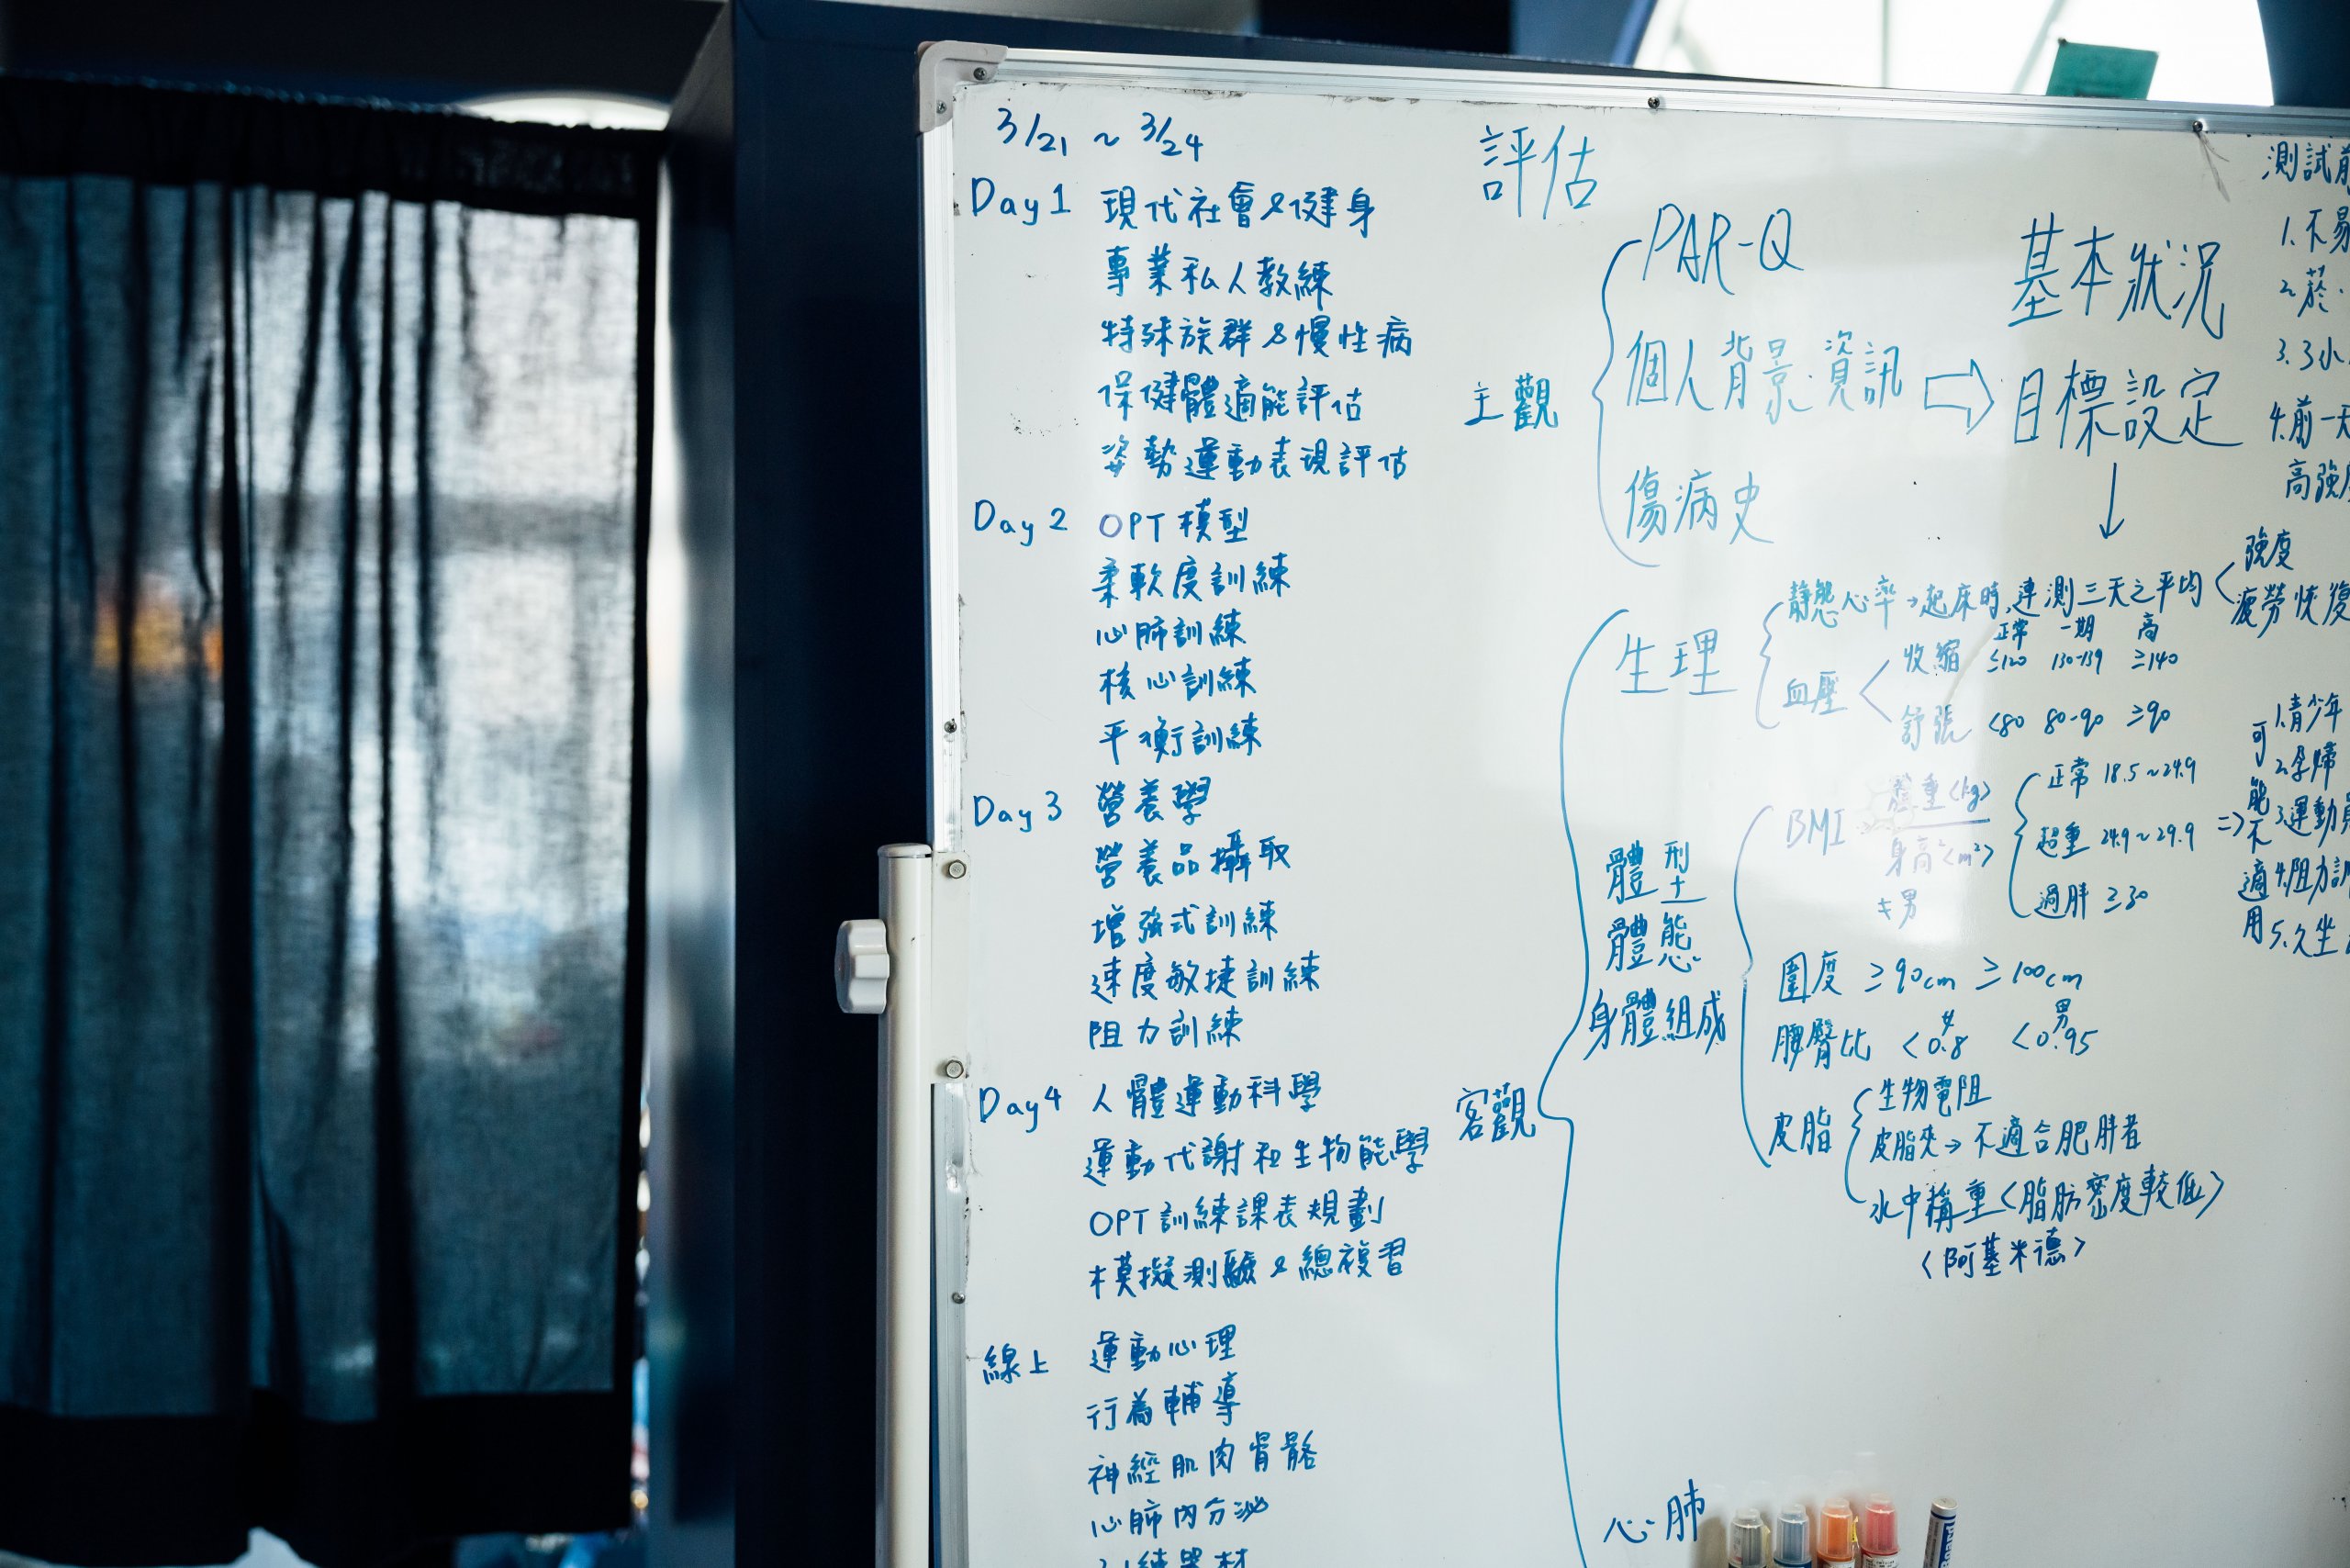 3/21 ~ 3/24
Day 1 現代社會&健身
專業私人教練
特殊族群&慢性病
保健體適能評估
姿勢運動表現評估
Day 2 OPT模型
柔軟度訓練
心肺訓練
核心訓練
平衡訓練
Day 3 營養學
營養品攝取
增強式訓練
速度敏捷訓練
阻力訓練
Day 4 人體運動科學
運動代謝和生物能學
OPT訓練課表規劃
模擬測驗&總複習
線上 運動心理
行為輔導
神經肌肉骨骼
心肺內分泌
評估
主觀
PAR-Q
個人背景資訊
傷病史
基本狀況
目標設定
客觀
生理
靜態心率→起床時,連測三天之平均
強度
疲勞恢復
正常 一期 高
血壓
收縮 ≤120 130-139 ≥140
舒張 <80 80-90 ≥90
體型
體態
身體組成
BMI 體重(kg)
身高²(m²)
正常 18.5~24.9
超重 24.9~29.9
過胖 ≥30
圍度 ≥90cm ≥100cm
女 男
腰臀比 <0.8 <0.95
皮脂
生物電阻
皮脂夾→不適合肥胖者
水中稱重(脂肪密度較低)
(阿基米德)
心肺
測試前
1.不易
2.菸.
3.3小
4.前一天
高強度
可能不適用
1.青少年
2.孕婦
3.運動員
4.阻力訓
5.久坐